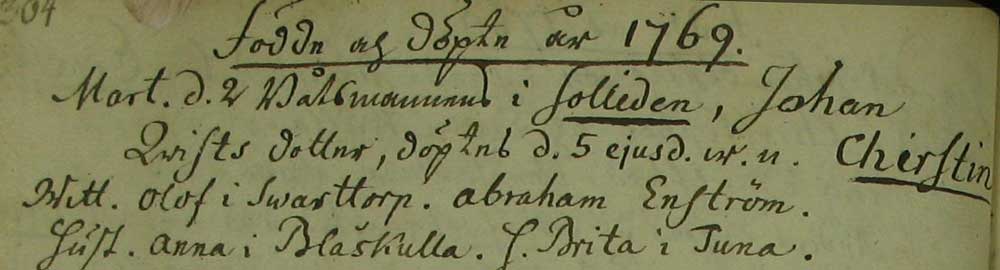 204
Födde och döpte år 1769.
Mart. d. 2 Båtsmannens i Solliden, Johan
Qvists dotter, döptes d. 5 ejusd. w. n. Cherstin
Witt. Olof i Swarttorp. Abraham Enström.
Hust. Anna i Blåkulla. H. Brita i Tuna.